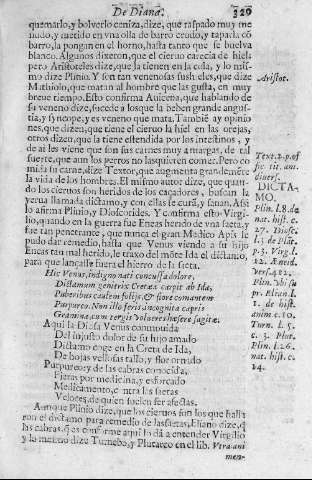 De Diana. 320
quemarlo, y bolverlo ceniza, dize, que raspado muy me-
nudo, y metido en vna olla de barro crudo, y tapada cõ
barro, la pongan en el horno, hasta tanto que se buelva
blanco. Algunos dixeron, que el ciervo carecia de hiel:
pero Aristoteles dize, que la tienen en la cola, y lo mis-
mo dize Plinio. Y son tan venenosas sus hieles, que dize
Mathiolo, que matan al hombre que las gusta, en muy
breve tiempo. Esto confirma Avicena, que hablando de
su veneno dize, sucede a los que la beben grande angus-
tia, y syncope, y es veneno que mata. Tambiẽ ay opinio
nes, que dizen, que tiene el ciervo la hiel en las orejas,
otros dizen, que la tiene estendida por los intestinos, y
de aì les viene que son sus carnes muy amargas, de tal
suerte, que aun los perros no las quieren comer. Pero co
mida su carne, dize Textor, que augmenta grandemẽte
la vida de los hombres. El mismo autor dize, que quan-
do los ciervos son heridos de los caçadores, buscan la
yerva llamada dictamo, y con ellas se curã, y sanan. Assi
lo afirma Plinio, y Dioscorides. Y confirma esto Virgi-
lio, quando en la guerra fue Eneas herido de vna saeta, y
fue tan penetrante, que nunca el gran Medico Apis le
pudo dar remedio, hasta que Venus viendo a su hijo
Eneas tan mal herido, le traxo del mõte Ida el dictamo,
para que lançasse fuera el hierro de la saeta.
Hic Venus, indigno nati concussa dolore,
Dictamum genitrix Cretæa carpit ab Ida,
Puberibus caulem folijs, & flore comantem
Purpureo. Non illa feris incognita capris
Gramina, cum tergis volucres hæsere sagitæ.
Aqui la Diosa Venus conmovida
Del injusto dolor de su hijo amado
Dictamo coge en la Creta de Ida,
De hojas vellosas tallo, y flor ornado
Purpureo y de las cabras conocida,
Fieras por medicina, y esforcado
Medicamento, contra las saetas
Velozes, de quien suelen ser afectas.
Aunque Plinio dize, que los ciervos son los que hallã
ron el dictamo para remedio de las saetas, Eliano dize, q̃
las cabras, q̃ es conforme aqui lo dà a entender Virgilio
y lo mesmo dize Turnebo, y Plutarco en el lib. Vtra ani
men-
Aristot.
Text. 2. p. of
fic. tit. ani.
diuers.
DICTA-
MO.
Plin. l. 8. de
nat. hist. c.
27. Diosc.
l. 3. de Plãt.
p. 3. Virg. l.
12. Æneid.
vers. 412.
Plin. vbi su
pr. Elian. l.
1. de hist.
anim. c. 10.
Turn. l. 5.
c. 3. Plut.
Plin. l. 26.
nat. hist. c.
14.